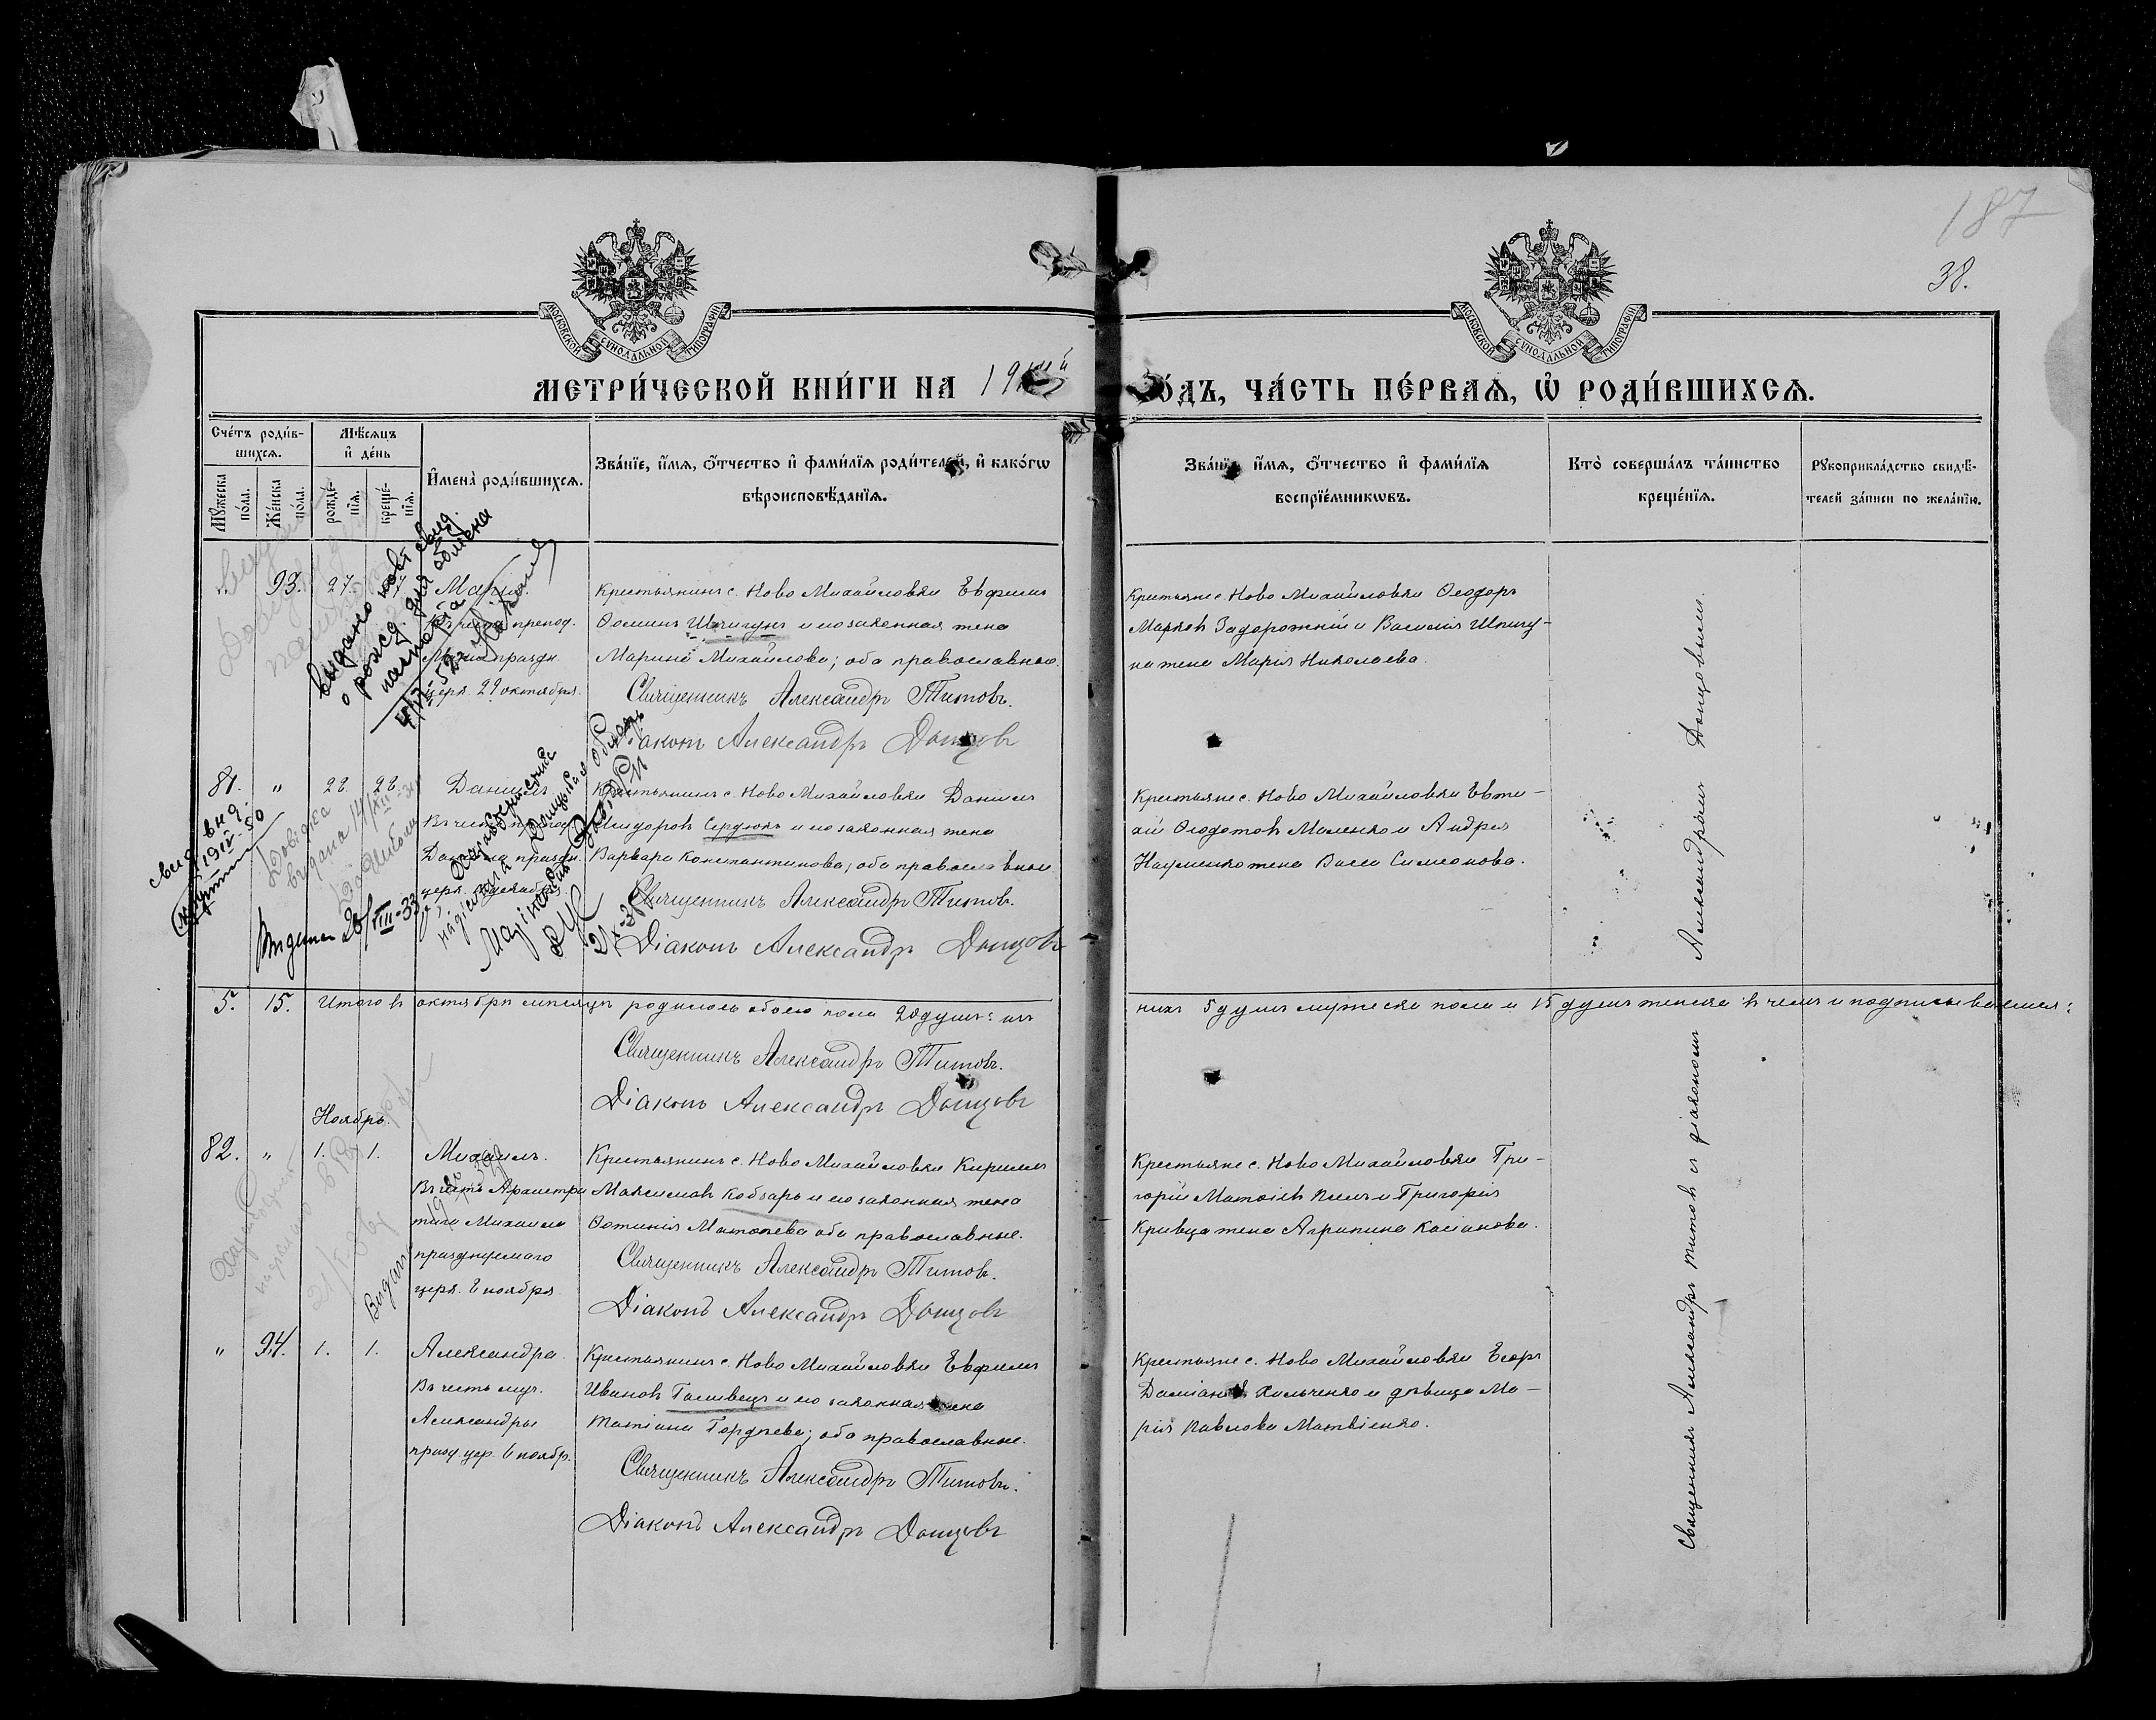 187
38.
МОСКОВСКОЙ СУНОДАЛЬНОЙ ТИПОГРАФІИ
МОСКОВСКОЙ СУНОДАЛЬНОЙ ТИПОГРАФІИ
МЕТРИ́ЧЕСКОЙ КНИ́ГИ НА 19
ГО́ДЪ, ЧА́СТЬ ПЕ́РВАѦ, Ѡ҆ РОДИ́ВШИХСѦ.
Сче́тъ роди́в-
шихсѧ.
Мꙋ́жеска по́ла.
Же́нска по́ла.
Мѣ́сѧцъ
и҆ де́нь
рожде́-
нїѧ.
креще́-
нїѧ.
И҆мена̀ роди́вшихсѧ.
Зва́нїе, и҆́мѧ, ѻ҆́тчество и҆ фами́лїѧ роди́телей, и҆ како́гѡ
вѣроисповѣ́данїѧ.
Зва́нїе, и҆́мѧ, ѻ҆́тчество и҆ фами́лїѧ
воспрїе́мникѡвъ.
Кто̀ соверша́лъ та́инство
креще́нїѧ.
Рꙋкоприкла́дство свидѣ́-
телей за́писи по жела́нїю.
выдано повт свид.
о рожд. для обмена
паспорта
" 93. 27. 27. Марія.
Въ честь препод.
Маріи праздн.
церк. 29 октября.
Крестьянинъ с. Ново Михайловки Евфимъ
Ѳоминъ Шпигунъ и его законная жена
Марина Михайлова; оба православные.
Священникъ Александръ Титовъ.
Діаконъ Александръ Донцовъ
Крестьяне с. Ново Михайловки Ѳеодоръ
Марковъ Задорожній и Василія Шпигу-
на жена Марія Николаева.
81. " 28. 28. Даніилъ
Въ честь препод.
Даніила праздн.
церк.
Крестьянинъ с. Ново Михайловки Даніилъ
Исидоровъ Сердюкъ и его законная жена
Варвара Константинова; оба православные
Священникъ Александръ Титовъ.
Діаконъ Александръ Донцовъ
Крестьяне с. Ново Михайловки Евти-
хій Ѳеодотовъ Маленко и Андрея
Науменко жена Васса Симеонова.
Довідка
видана 14/XII-34
5. 15. Итого въ октябрѣ мѣсяцѣ родилось обоего пола 20 душъ: изъ
нихъ 5 душъ мужеска пола и 15 душъ женска въ чемъ и подписываемся:
Священникъ Александръ Титовъ.
Діаконъ Александръ Донцовъ
Ноябрь.
82. " 1. 1. Михаилъ.
Въ честь Архистра
тига Михаила
празднуемаго
церк. 8 ноября.
Крестьянинъ с. Ново Михайловки Кириллъ
Максимовъ Кобзарь и его законная жена
Фотинія Матѳеева оба православные.
Священникъ Александръ Титовъ.
Діаконъ Александръ Донцовъ
Крестьяне с. Ново Михайловки Гри-
горій Матѳіевъ и Григорія
Кривца жена Агрипина Касіанова.
" 94. 1. 1. Александра.
Въ честь муч.
Александры
празд. цер. 6 ноябр.
Крестьянинъ с. Ново Михайловки Евфимъ
Ивановъ Голивецъ и его законная жена
Татіана Гордѣева; оба православные.
Священникъ Александръ Титовъ.
Діаконъ Александръ Донцовъ
Крестьяне с. Ново Михайловки Егоръ
Даміановъ Хильченко и дѣвица Ма-
рія Павлова Матвіенко.
Священникъ Александръ Титовъ съ діакономъ Александромъ Донцовымъ.